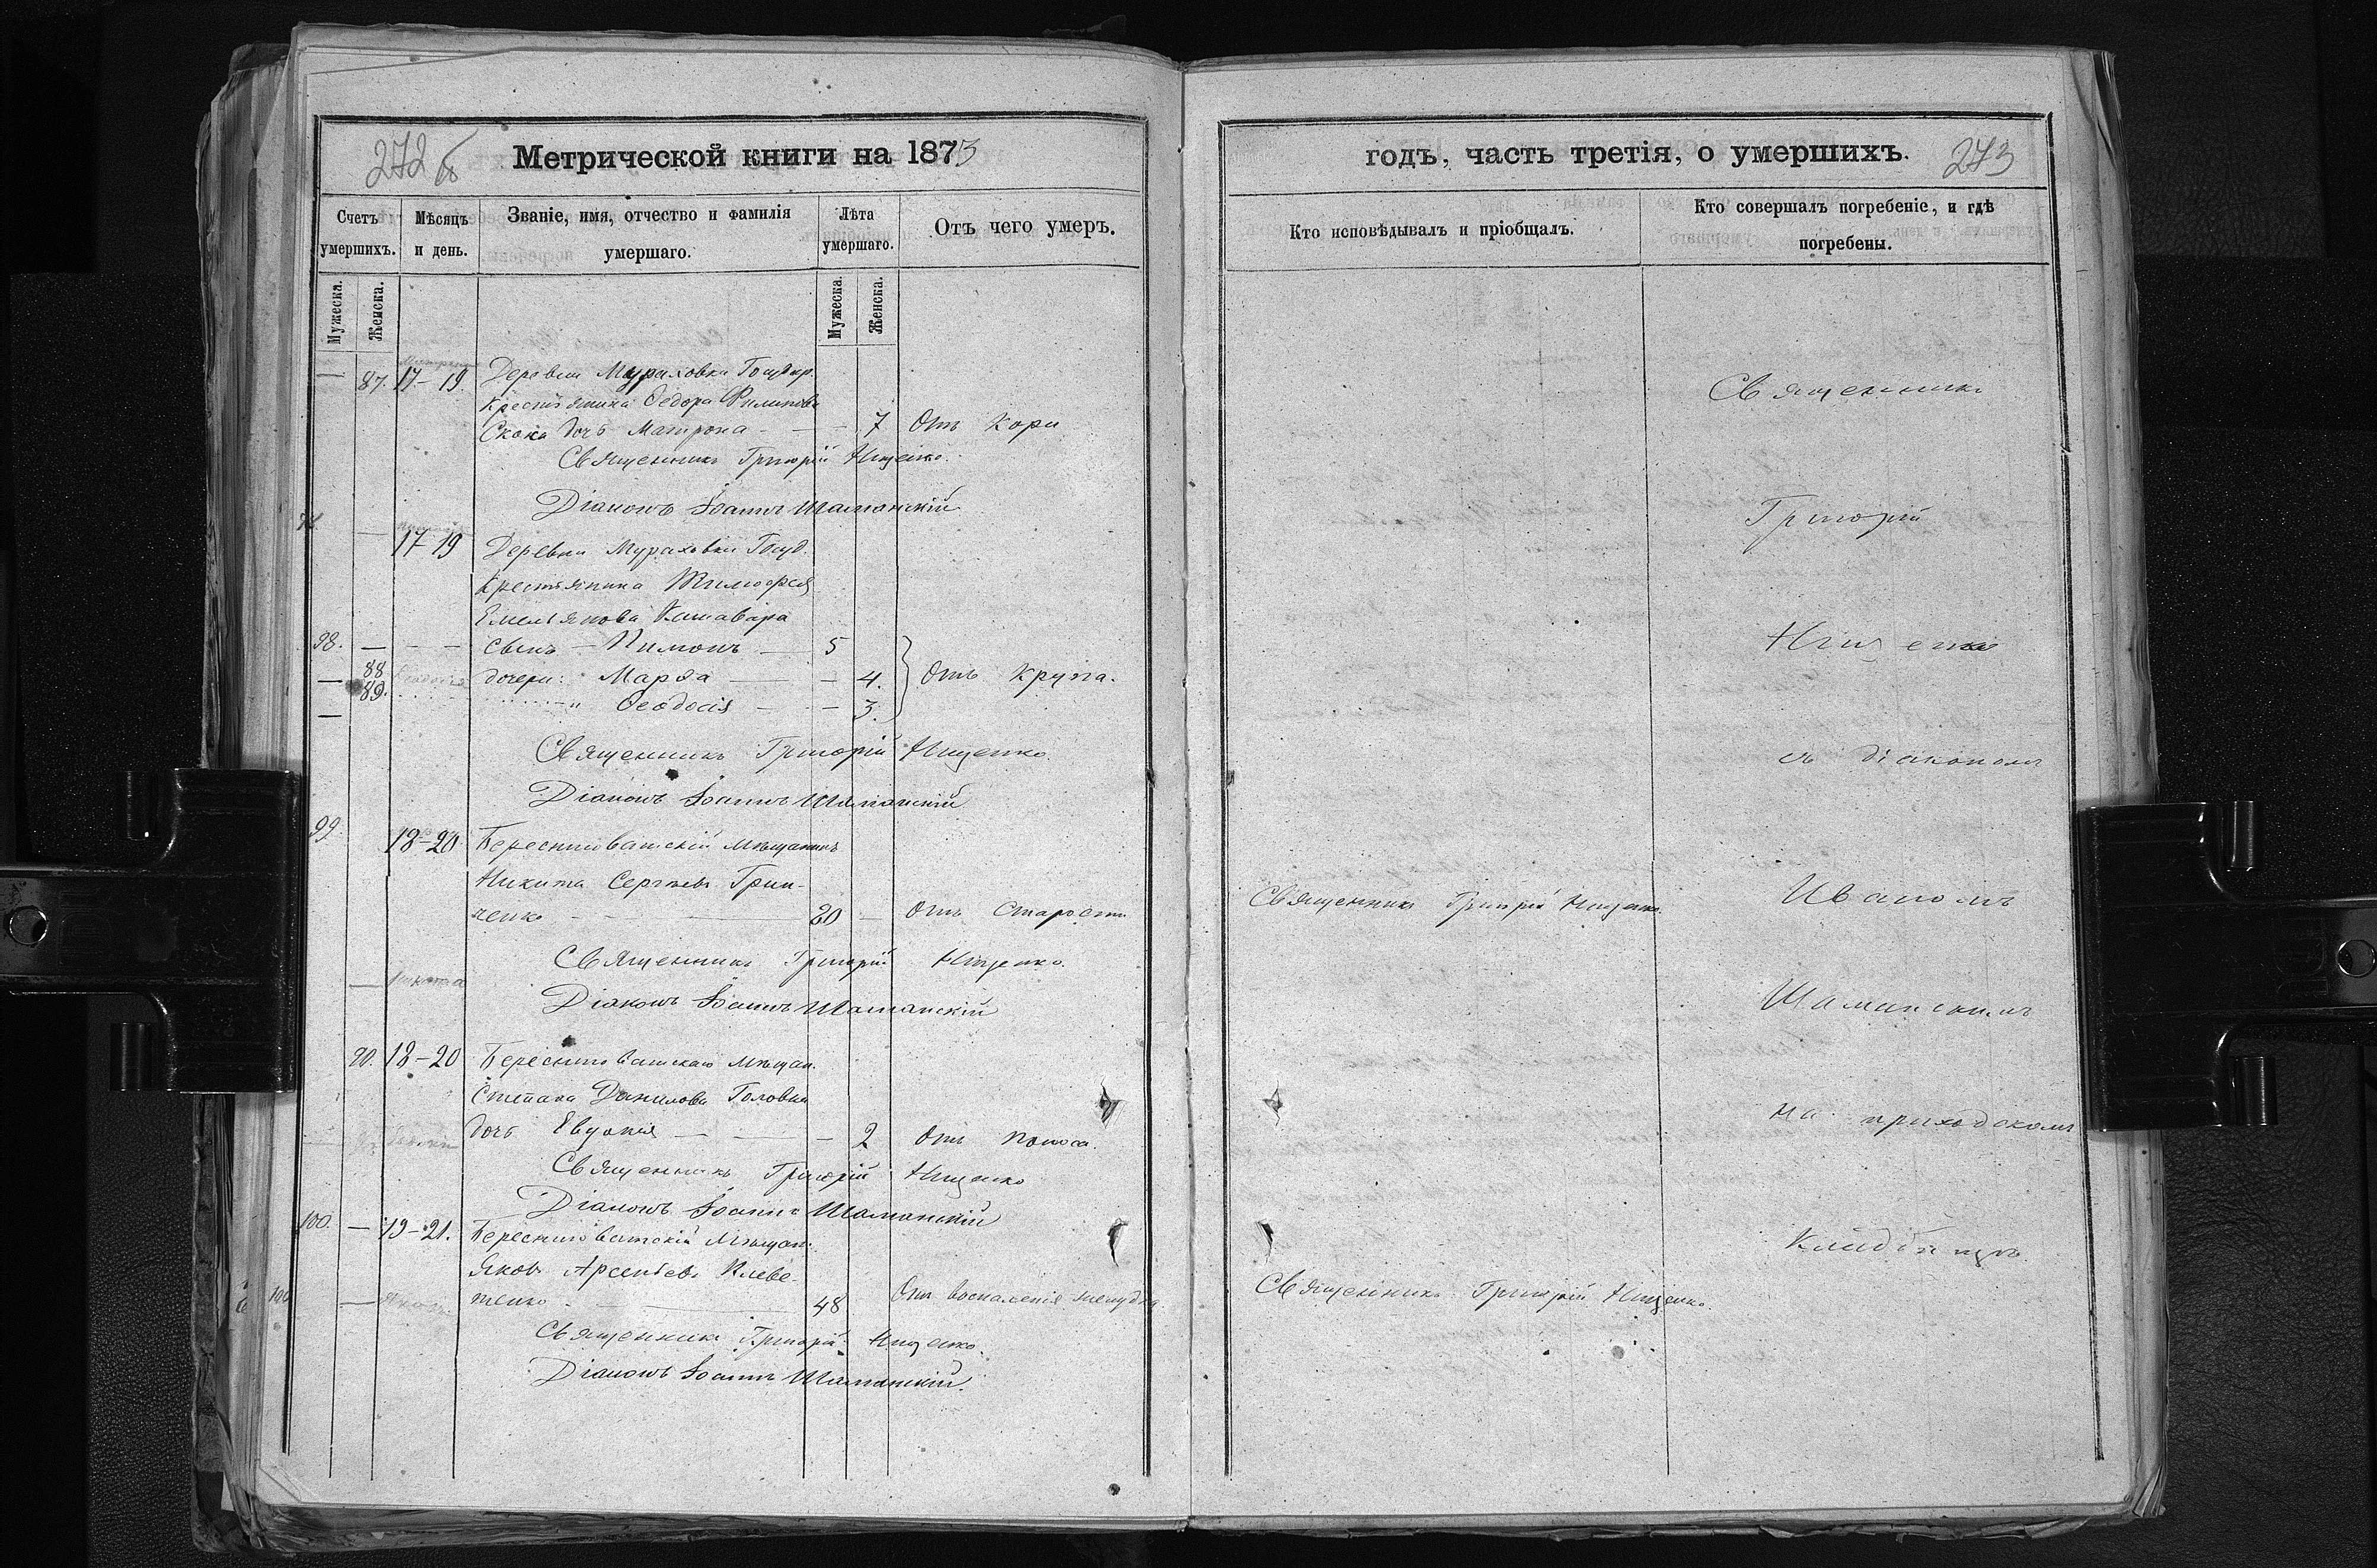 272 б
Метрической книги на 1873
Счетъ умершихъ.
Мѣсяцъ и день.
Званіе, имя, отчество и фамилія умершаго.
Лѣта умершаго.
Отъ чего умеръ.
Мужеска.
Женска.
Мужеска.
Женска.
— 87. 17–19. Деревни Мураховки Госуд.
Крестьянина Ѳедора Филипова
Скока дочь Матрона — — 7 Отъ Кори
Священникъ Григорій Нищенко.
Діаконъ Іоаннъ Шаманскій
17–19 Деревни Мураховки Госуд.
Крестьянина Тимоѳея
Емельянова
98. — — — сынъ — Пимонъ — 5
— 88 дочери: Марѳа — — 4. Отъ Крупа.
— 89. „ Ѳеодосія — — 3.
Священникъ Григорій Нищенко.
Діаконъ Іоаннъ Шаманскій
99. 18–20 Береснеговатскій мѣщанинъ
Никита Сергѣевъ Грин-
ченко — — 80 — Отъ Старости
Священникъ Григорій Нищенко.
Никита
Діаконъ Іоаннъ Шаманскій
90. 18–20 Береснеговатскаго мѣщан.
Степана Данилова Головка
дочь Евдокія — — — 2 Отъ поноса.
Священникъ Григорій Нищенко
Діаконъ Іоаннъ Шаманскій
100. — 19–21. Береснеговатскій мѣщан.
Яковъ Арсентьевъ Клеве-
100 — Яковъ. — 48 Отъ воспаленія желудка.
Священникъ Григорій Нищенко.
Діаконъ Іоаннъ Шаманскій.
годъ, часть третія, о умершихъ.
273
Кто исповѣдывалъ и пріобщалъ.
Кто совершалъ погребеніе, и гдѣ погребены.
Священникъ
Григорій
Нищенко
съ діакономъ
Священникъ Григорій Нищенко.
Иваномъ
Шаманскимъ
на приходскомъ
Кладбищѣ
Священникъ Григорій Нищенко.